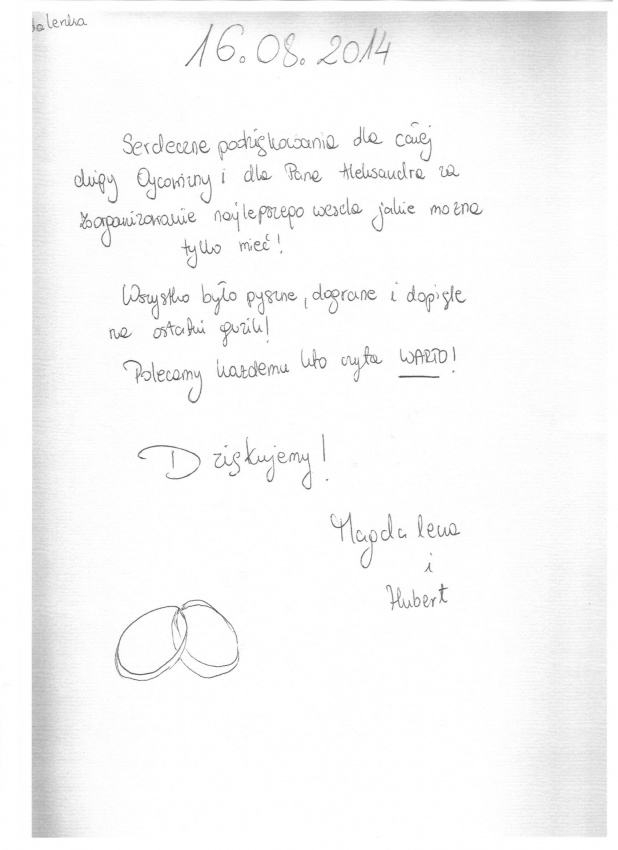 lenka
16.08.2014
Serdeczne podziękowania dla całej
ekipy Ojcowizny i dla Pana Aleksandra za
zorganizowanie najlepszego wesela jakie można
tylko mieć!
Wszystko było pyszne, dograne i dopięte
na ostatni guzik!
Polecamy każdemu kto czyta WARTO!
Dziękujemy!
Magdalena
i
Hubert